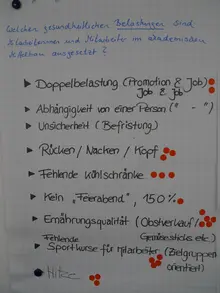 Welchen gesundheitlichen Belastungen sind
Mitarbeiterinnen und Mitarbeiter im akademischen
Mittelbau ausgesetzt?
Doppelbelastung (Promotion & Job)
Job & Job
Abhängigkeit von einer Person (" - ")
Unsicherheit (Befristung)
Rücken / Nacken / Kopf
Fehlende Kühlschränke
Kein "Feierabend", 150%
Ernährungsqualität (Obstverkauf /
Gemüsesticks etc.)
Fehlende
Sportkurse für Mitarbeiter (Zielgruppen-
orientiert)
Hitze